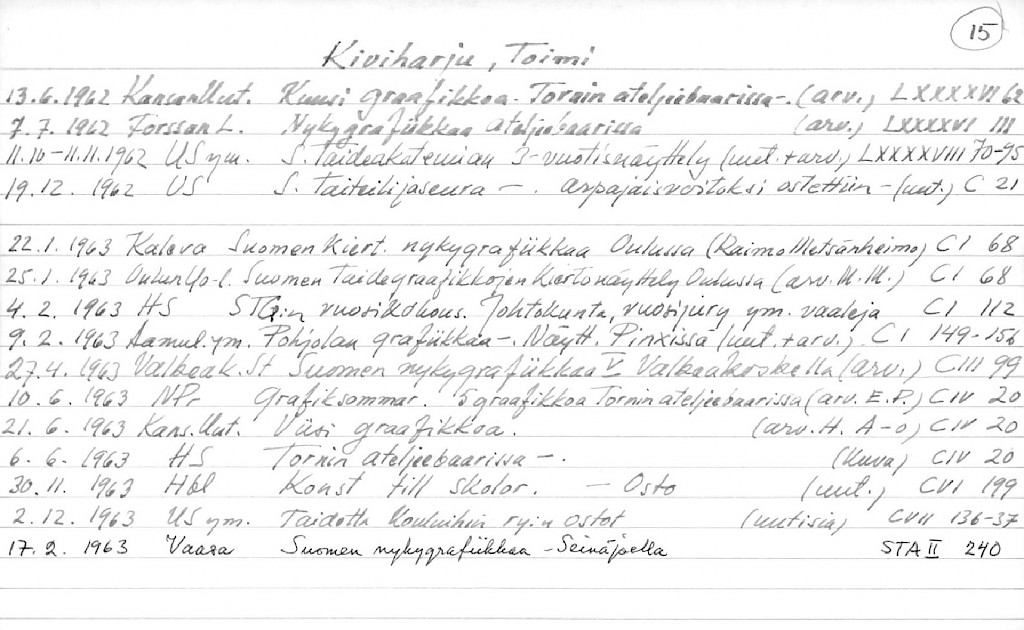 15
Kiviharju, Toimi
13.6.1962 Kansan Uut. Kuusi graafikkoa - Tornin ateljeebaarissa -. (arv.) LXXXXVI 62
7.7. 1962 Forssan L. Nykygrafiikkaa ateljeebaarissa (arv.) LXXXXVI 111
11.10-11.11.1962 US ym. S. Taideakatemian 3-vuotisnäyttely (uut. + arv.) LXXXXVIII 70-95
19.12. 1962 US S. Taiteilijaseura - . arpajaisvoitoksi ostettiin - (uut.) C 21
22.1. 1963 Kaleva Suomen Kiert. nykygrafiikkaa Oulussa (Raimo Metsänheimo) CI 68
25.1. 1963 Oulun Yo-l. Suomen Taidegraafikkojen Kiertonäyttely Oulussa (arv. M.M.) CI 68
4.2. 1963 HS STG:n vuosikokous. Johtokunta, vuosijury ym. vaaleja CI 112
9.2. 1963 Aamul. ym. Pohjolan grafiikkaa -. Näytt. Pinxissä (uut. + arv.) CI 149-156
27.4. 1963 Valkeak. St Suomen nykygrafiikkaa V Valkeakoskella (arv.) CIII 99
10.6. 1963 NPr Grafiksommar. 5 graafikkoa Tornin ateljeebaarissa (arv. E.P.) CIV 20
21.6. 1963 Kans. Uut. Viisi graafikkoa. (arv. H. A-o) CIV 20
6.6. 1963 HS Tornin ateljeebaarissa -. (kuva) CIV 20
30.11. 1963 Hbl Konst till skolor. - Osto (uut.) CVI 199
2.12. 1963 US ym. Taidetta kouluihin ry:n ostot (uutisia) CVII 136-37
17.2. 1963 Vaasa Suomen nykygrafiikkaa - Seinäjoella STA II 240